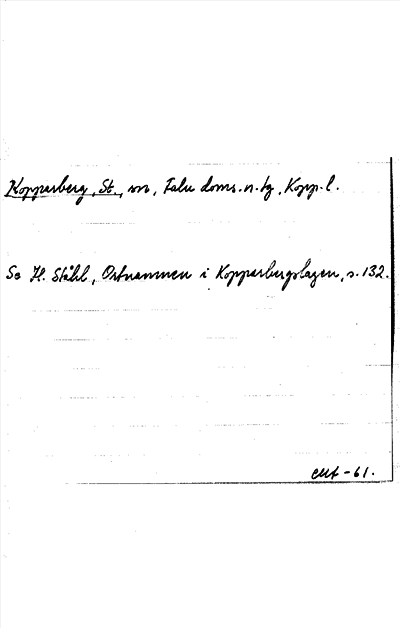 Kopparberg, St., sn, Falu doms.n. tg, Kopp. l.
Se H. Ståhl, Ortnamnen i Kopparbergslagen, s. 132.
-61.